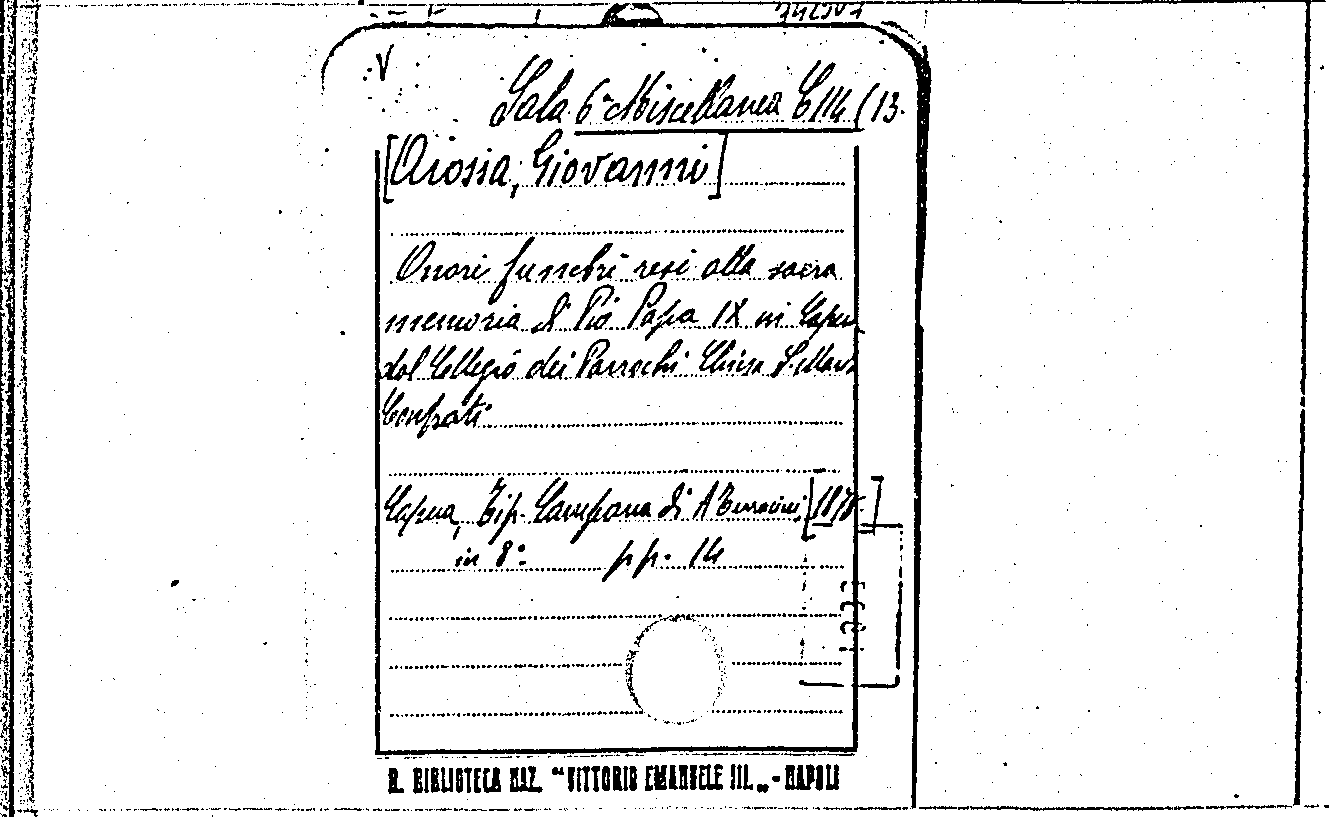 V
Sala 6ª Miscellanea C 114 (13.
[Arossia, Giovanni]
Onori funebri resi alla sacra
memoria di Pio Papa IX in Capua
dal Collegio dei Parrochi Chiesa S.
Capua, Tip. Campana di A [187
in 8º pp. 14
R. BIBLIOTECA NAZ. "VITTORIO EMANUELE III." - NAPOLI